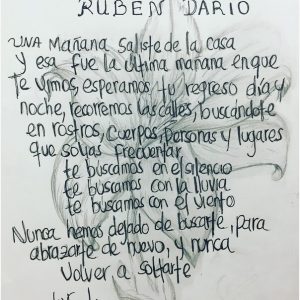 RUBEN DARIO
UNA Mañana saliste de la casa
y esa fue la última mañana en que
te vimos, esperamos tu regreso día y
noche, recorremos las calles, buscándote
en rostros, cuerpos, personas y lugares
que solías frecuentar,
te buscamos en el silencio
te buscamos con la lluvia
te buscamos con el viento
Nunca hemos dejado de buscarte, para
abrazarte de nuevo, y nunca
volver a soltarte